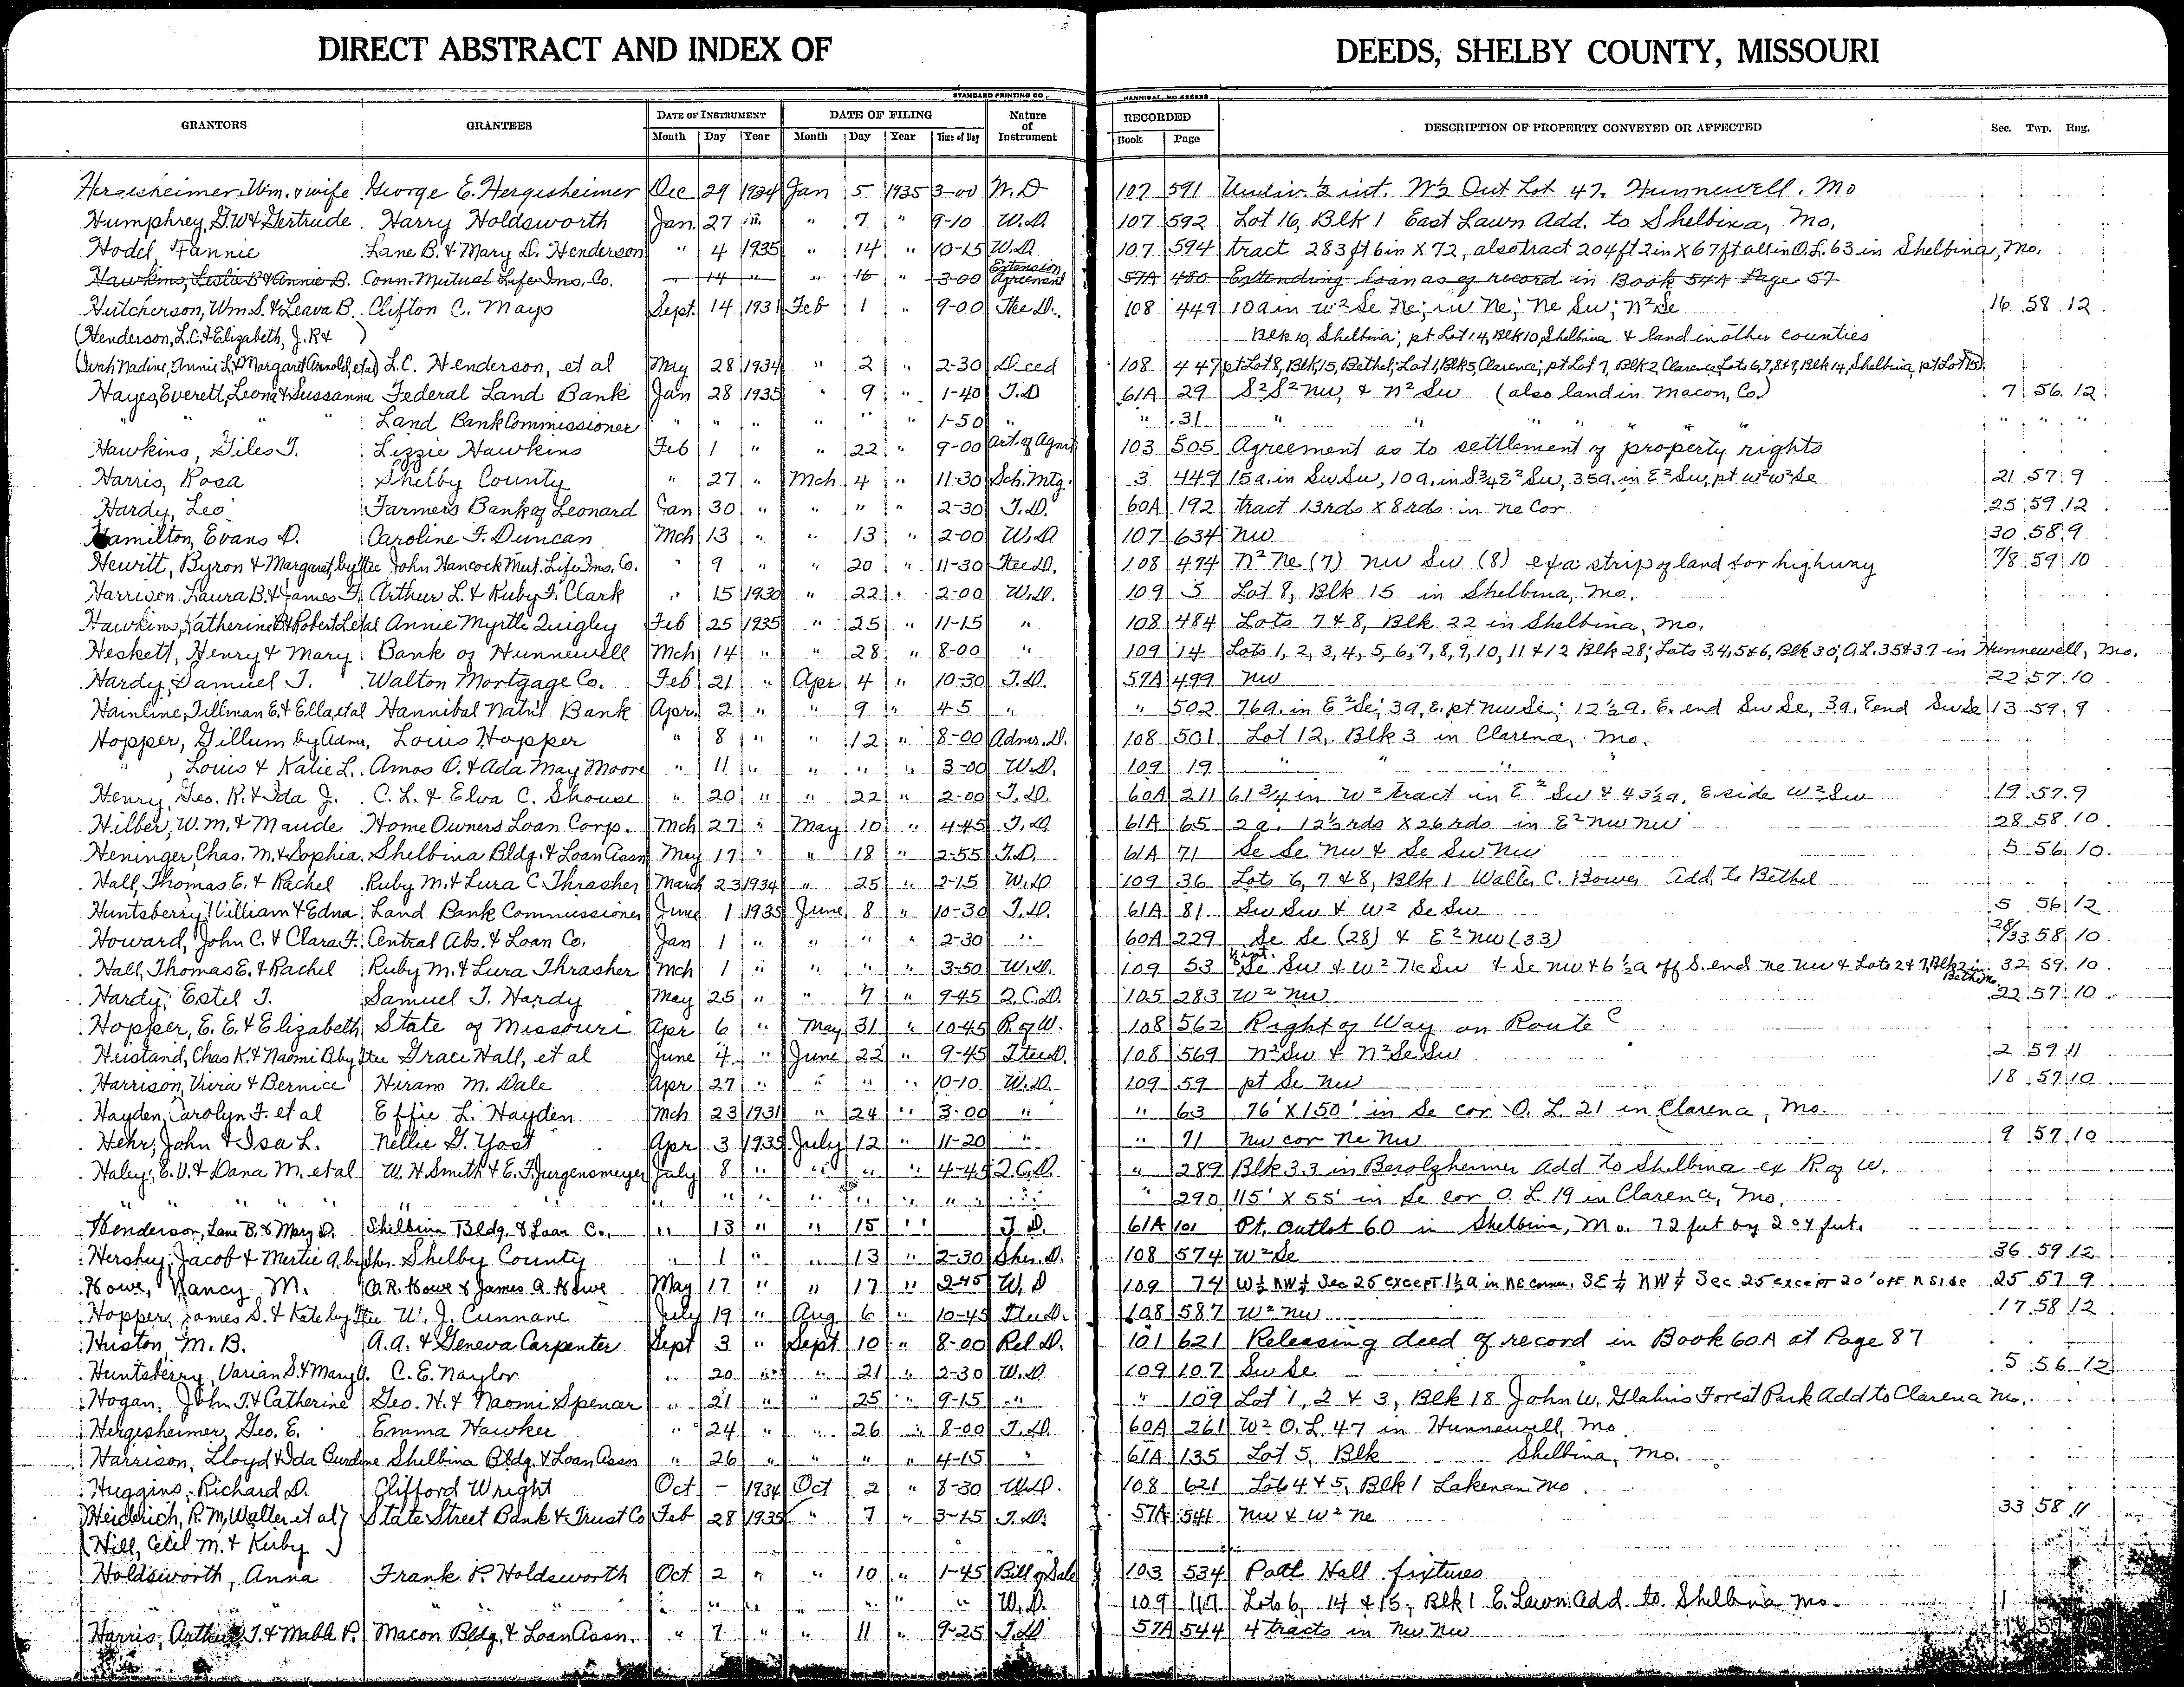 DIRECT ABSTRACT AND INDEX OF DEEDS, SHELBY COUNTY, MISSOURI
STANDARD PRINTING CO. HANNIBAL, MO.
GRANTORS GRANTEES DATE OF INSTRUMENT DATE OF FILING Nature of Instrument RECORDED DESCRIPTION OF PROPERTY CONVEYED OR AFFECTED Sec. Twp. Rng.
Month Day Year Month Day Year Time of Day Book Page
Hergesheimer, Wm. & wife George E. Hergesheimer Dec 29 1934 Jan 5 1935 3-00 W.D 107 591 Undiv. ½ int. N½ Out Lot 47, Hunnewell, Mo
Humphrey, G.W & Gertrude Harry Holdsworth Jan. 27 " " 7 " 9-10 W.D. 107 592 Lot 16, Blk 1 East Lawn Add. to Shelbina, Mo.
Hodel, Fannie Lane B. & Mary D. Henderson " 4 1935 " 14 " 10-15 W.D. 107 594 tract 283 ft 6 in X 72, also tract 204 ft 2 in X 67 ft all in O.L. 63 in Shelbina, Mo.
Hawkins, Leslie B & Annie B. Conn. Mutual Life Ins. Co. 14 " " 16 " 3-00 Extension Agreement 57A 480 Extending loan as of record in Book 54A Page 57
Hutcherson, Wm S. & Leava B. Clifton C. Mays Sept. 14 1931 Feb 1 " 9-00 Tee D. 108 449 10a in W² Se Ne; nw Ne; Ne Sw; N² Se 16 58 12
(Henderson, L.C. & Elizabeth, J.R & ) Blk 10, Shelbina; pt Lot 14, Blk 10, Shelbina & land in other counties
(Sarah Nadine, Annie L. & Margaret Arnold, et al) L.C. Henderson, et al May 28 1934 " 2 " 2-30 Deed 108 447 pt Lot 8, Blk 15, Bethel; Lot 1, Blk 5, Clarence; pt Lot 7, Blk 2, Clarence, Lots 6,7,8 & 9, Blk 14, Shelbina, pt Lot 15)
Hayes, Everett, Leona & Sussanna Federal Land Bank Jan 28 1935 " 9 " 1-40 T.D 61A 29 S² S² nw, & N² Sw (also land in Macon, Co.) 7 56 12
" " Land Bank Commissioner " " " " " 1-50 " " 31 " " " " " " " "
Hawkins, Giles T. Lizzie Hawkins Feb 1 " " 22 " 9-00 Art. of Agmt. 103 505 Agreement as to settlement of property rights
Harris, Rosa Shelby County " 27 " Mch 4 " 11-30 Sch. Mtg. 3 449 15a. in Sw Sw, 10a. in S¾ E² Sw, 35a. in E² Sw, pt w² w² Se 21 57 9
Hardy, Leo Farmers Bank of Leonard Jan 30 " " " " 2-30 T.D. 60A 192 tract 13rds X 8rds in ne Cor 25 59 12
Hamilton, Evans D. Caroline F. Duncan Mch 13 " " 13 " 2-00 W.D 107 634 nw 30 58 9
Hewitt, Byron & Margaret, by Tee John Hancock Mut. Life Ins. Co. " 9 " " 20 " 11-30 Tee D. 108 474 N² Ne (7) nw Sw (8) ex a strip of land for highway 7/8 59 10
Harrison Laura B. & James F. Arthur L. & Ruby F. Clark " 15 1930 " 22 " 2-00 W.D. 109 5 Lot 8, Blk 15 in Shelbina, Mo.
Hawkins, Katherine B & Robert L et al Annie Myrtle Quigley Feb 25 1935 " 25 " 11-15 " 108 484 Lots 7 & 8, Blk 22 in Shelbina, Mo.
Heskett, Henry & Mary Bank of Hunnewell Mch 14 " " 28 " 8-00 " 109 14 Lots 1, 2, 3, 4, 5, 6, 7, 8, 9, 10, 11 & 12 Blk 28; Lots 3,4,5 & 6, Blk 30; O.L. 35 & 37 in Hunnewell, Mo.
Hardy, Samuel T. Walton Mortgage Co. Feb 21 " Apr 4 " 10-30 T.D. 57A 499 nw 22 57 10
Hainline, Tillman E. & Ella, et al Hannibal Nat'l Bank Apr. 2 " " 9 " 4 5 " " 502 76a. in E² Se; 3a, E. pt nw Se; 12½ a. E. end Sw Se, 3a. E end Sw Se 13 59 9
Hopper, Gillum by Adms, Louis Hopper " 8 " " 12 " 8-00 Adms. D. 108 501 Lot 12, Blk 3 in Clarence, Mo.
" , Louis & Katie L. Amos O. & Ada May Moore " 11 " " " " 3-00 W.D. 109 19 " " "
Henry, Geo. R. & Ida J. C. L. & Elva C. Shouse " 20 " " 22 " 2-00 T.D. 60A 211 61¾ in W² tract in E² Sw & 43½a. E side W² Sw 19 57 9
Hilber, W.M. & Maude Home Owners Loan Corp. Mch 27 " May 10 " 4-45 T.D. 61A 65 2a. 12½ rds X 26 rds in E² nw nw 28 58 10
Heninger, Chas. M. & Sophia Shelbina Bldg. & Loan Assn May 17 " " 18 " 2-55 T.D. 61A 71 Se Se nw & Se Sw nw 5 56 10
Hall, Thomas E. & Rachel Ruby M. & Lura C. Thrasher March 23 1934 " 25 " 2-15 W.D 109 36 Lots 6, 7 & 8, Blk 1 Walter C. Bower Add, to Bethel
Huntsberry, William & Edna Land Bank Commissioner June 1 1935 June 8 " 10-30 T.D. 61A 81 Sw Sw & W² Se Sw 5 56 12
Howard, John C. & Clara F. Central Abs. & Loan Co. Jan 1 " " " " 2-30 " 60A 229 Se Se (28) & E² nw (33) 28/33 58 10
Hall, Thomas E. & Rachel Ruby M. & Lura Thrasher Mch 1 " " " " 3-50 W.D. 109 53 Se Sw & W² Ne Sw & Se nw & 6½a off S. end ne nw & Lots 2 & 7, Blk 2 in Bethel Mo 32 59 10
Hardy, Estel T. Samuel T. Hardy May 25 " " 7 " 9-45 Q.C.D. 105 283 W² nw 22 57 10
Hopper, E. E. & Elizabeth State of Missouri Apr 6 " May 31 " 10-45 R. of W. 108 562 Right of Way on Route C
Heistand, Chas K. & Naomi B by Tee Grace Hall, et al June 4 " June 22 " 9-45 Tee D. 108 569 N² Sw & N² Se Sw 2 59 11
Harrison, Viria & Bernice Hiram M. Dale Apr 27 " " " " 10-10 W.D. 109 59 pt Se nw 18 57 10
Hayden, Carolyn F. et al Effie L. Hayden Mch 23 1931 " 24 " 3-00 " " 63 76' X 150' in Se cor O. L. 21 in Clarence, Mo.
Hehr, John & Isa L. Nellie G. Yost Apr 3 1935 July 12 " 11-20 " " 71 nw cor Ne nw 9 57 10
Haley, E.V. & Dana M. et al W. H. Smith & E. F. Jurgensmeyer July 8 " " " " 4-45 Q.C.D. " 289 Blk 33 in Berolzheimer Add to Shelbina ex R of W.
" " " " " " " " " " " " " 290 115' X 55' in Se cor O. L. 19 in Clarence, Mo.
Henderson, Lane B. & Mary D. Shelbina Bldg. & Loan Co. " 13 " " 15 " T.D. 61A 101 Pt. outlot 60 in Shelbina, Mo. 72 feet by 204 feet.
Hershey, Jacob & Mertie A. by Shr. Shelby County " 1 " " 13 " 2-30 Sher. D. 108 574 W² Se 36 59 12
Howe, Nancy M. O.R. Howe & James A. Howe May 17 " " 17 " 2-45 W.D 109 74 W½ NW¼ Sec 25 except 1½a in NE corner. SE¼ NW¼ Sec 25 except 20' off N side 25 57 9
Hopper, James S. & Kate by Tee W. J. Cunnane July 19 " Aug 6 " 10-45 Tee D. 108 587 W² nw 17 58 12
Huston, M. B. A.A. & Geneva Carpenter Sept 3 " Sept 10 " 8-00 Rel D. 101 621 Releasing deed of record in Book 60A at Page 87
Huntsberry, Varian S. & Mary A. C. E. Naylor " 20 " " 21 " 2-30 W.D 109 107 Sw Se 5 56 12
Hogan, John T. & Catherine Geo. H. & Naomi Spencer " 21 " " 25 " 9-15 " " 109 Lot 1, 2 & 3, Blk 18 John W. Glahns Forest Park Add to Clarence Mo.
Hergesheimer, Geo. E. Emma Hawker " 24 " " 26 " 8-00 T.D. 60A 261 W² O.L. 47 in Hunnewell, Mo.
Harrison, Lloyd & Ida Burdine Shelbina Bldg. & Loan Assn " 26 " " " " 4-15 " 61A 135 Lot 5, Blk Shelbina, Mo.
Huggins, Richard D. Clifford Wright Oct - 1934 Oct 2 " 8-30 W.D. 108 621 Lots 4 & 5, Blk 1 Lakenan Mo.
(Heiderich, R.M, Walter et al) State Street Bank & Trust Co Feb 28 1935 " 7 " 3-15 T.D. 57A 541 nw & W² ne 33 58 11
(Hill, Cecil M. & Kirby )
Holdsworth, Anna Frank P. Holdsworth Oct 2 " " 10 " 1-45 Bill of Sale 103 534 Pool Hall fixtures
" " " " " " " " " " W.D. 109 117 Lots 6, 14 & 15, Blk 1 E. Lawn Add. to Shelbina Mo.
Harris, Arthur T. & Mable P. Macon Bldg. & Loan Assn. " 7 " " 11 " 9-25 T.D 57A 544 4 tracts in nw nw